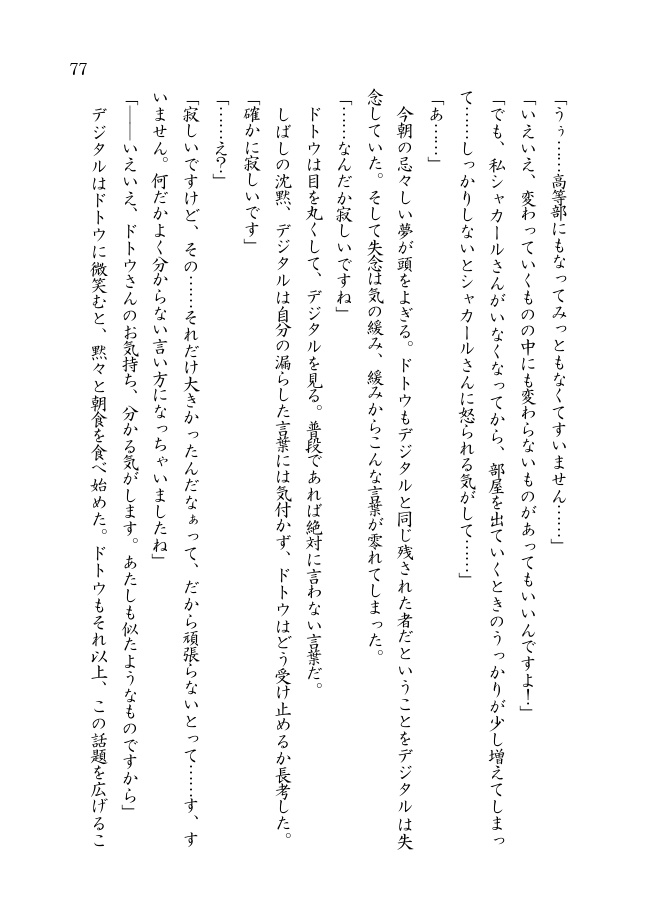 77
「うぅ……高等部にもなってみっともなくてすいません……」
「いえいえ、変わっていくものの中にも変わらないものがあってもいいんですよ！」
「でも、私シャカールさんがいなくなってから、部屋を出ていくときのうっかりが少し増えてしまっ
て……しっかりしないとシャカールさんに怒られる気がして……」
「あ……」
今朝の忌々しい夢が頭をよぎる。ドトウもデジタルと同じ残された者だということをデジタルは失
念していた。そして失念は気の緩み、緩みからこんな言葉が零れてしまった。
「……なんだか寂しいですね」
ドトウは目を丸くして、デジタルを見る。普段であれば絶対に言わない言葉だ。
しばしの沈黙、デジタルは自分の漏らした言葉には気付かず、ドトウはどう受け止めるか長考した。
「確かに寂しいです」
「……え？」
「寂しいですけど、その……それだけ大きかったんだなぁって、だから頑張らないとって……す、す
いません。何だかよく分からない言い方になっちゃいましたね」
「――いえいえ、ドトウさんのお気持ち、分かる気がします。あたしも似たようなものですから」
デジタルはドトウに微笑むと、黙々と朝食を食べ始めた。ドトウもそれ以上、この話題を広げるこ